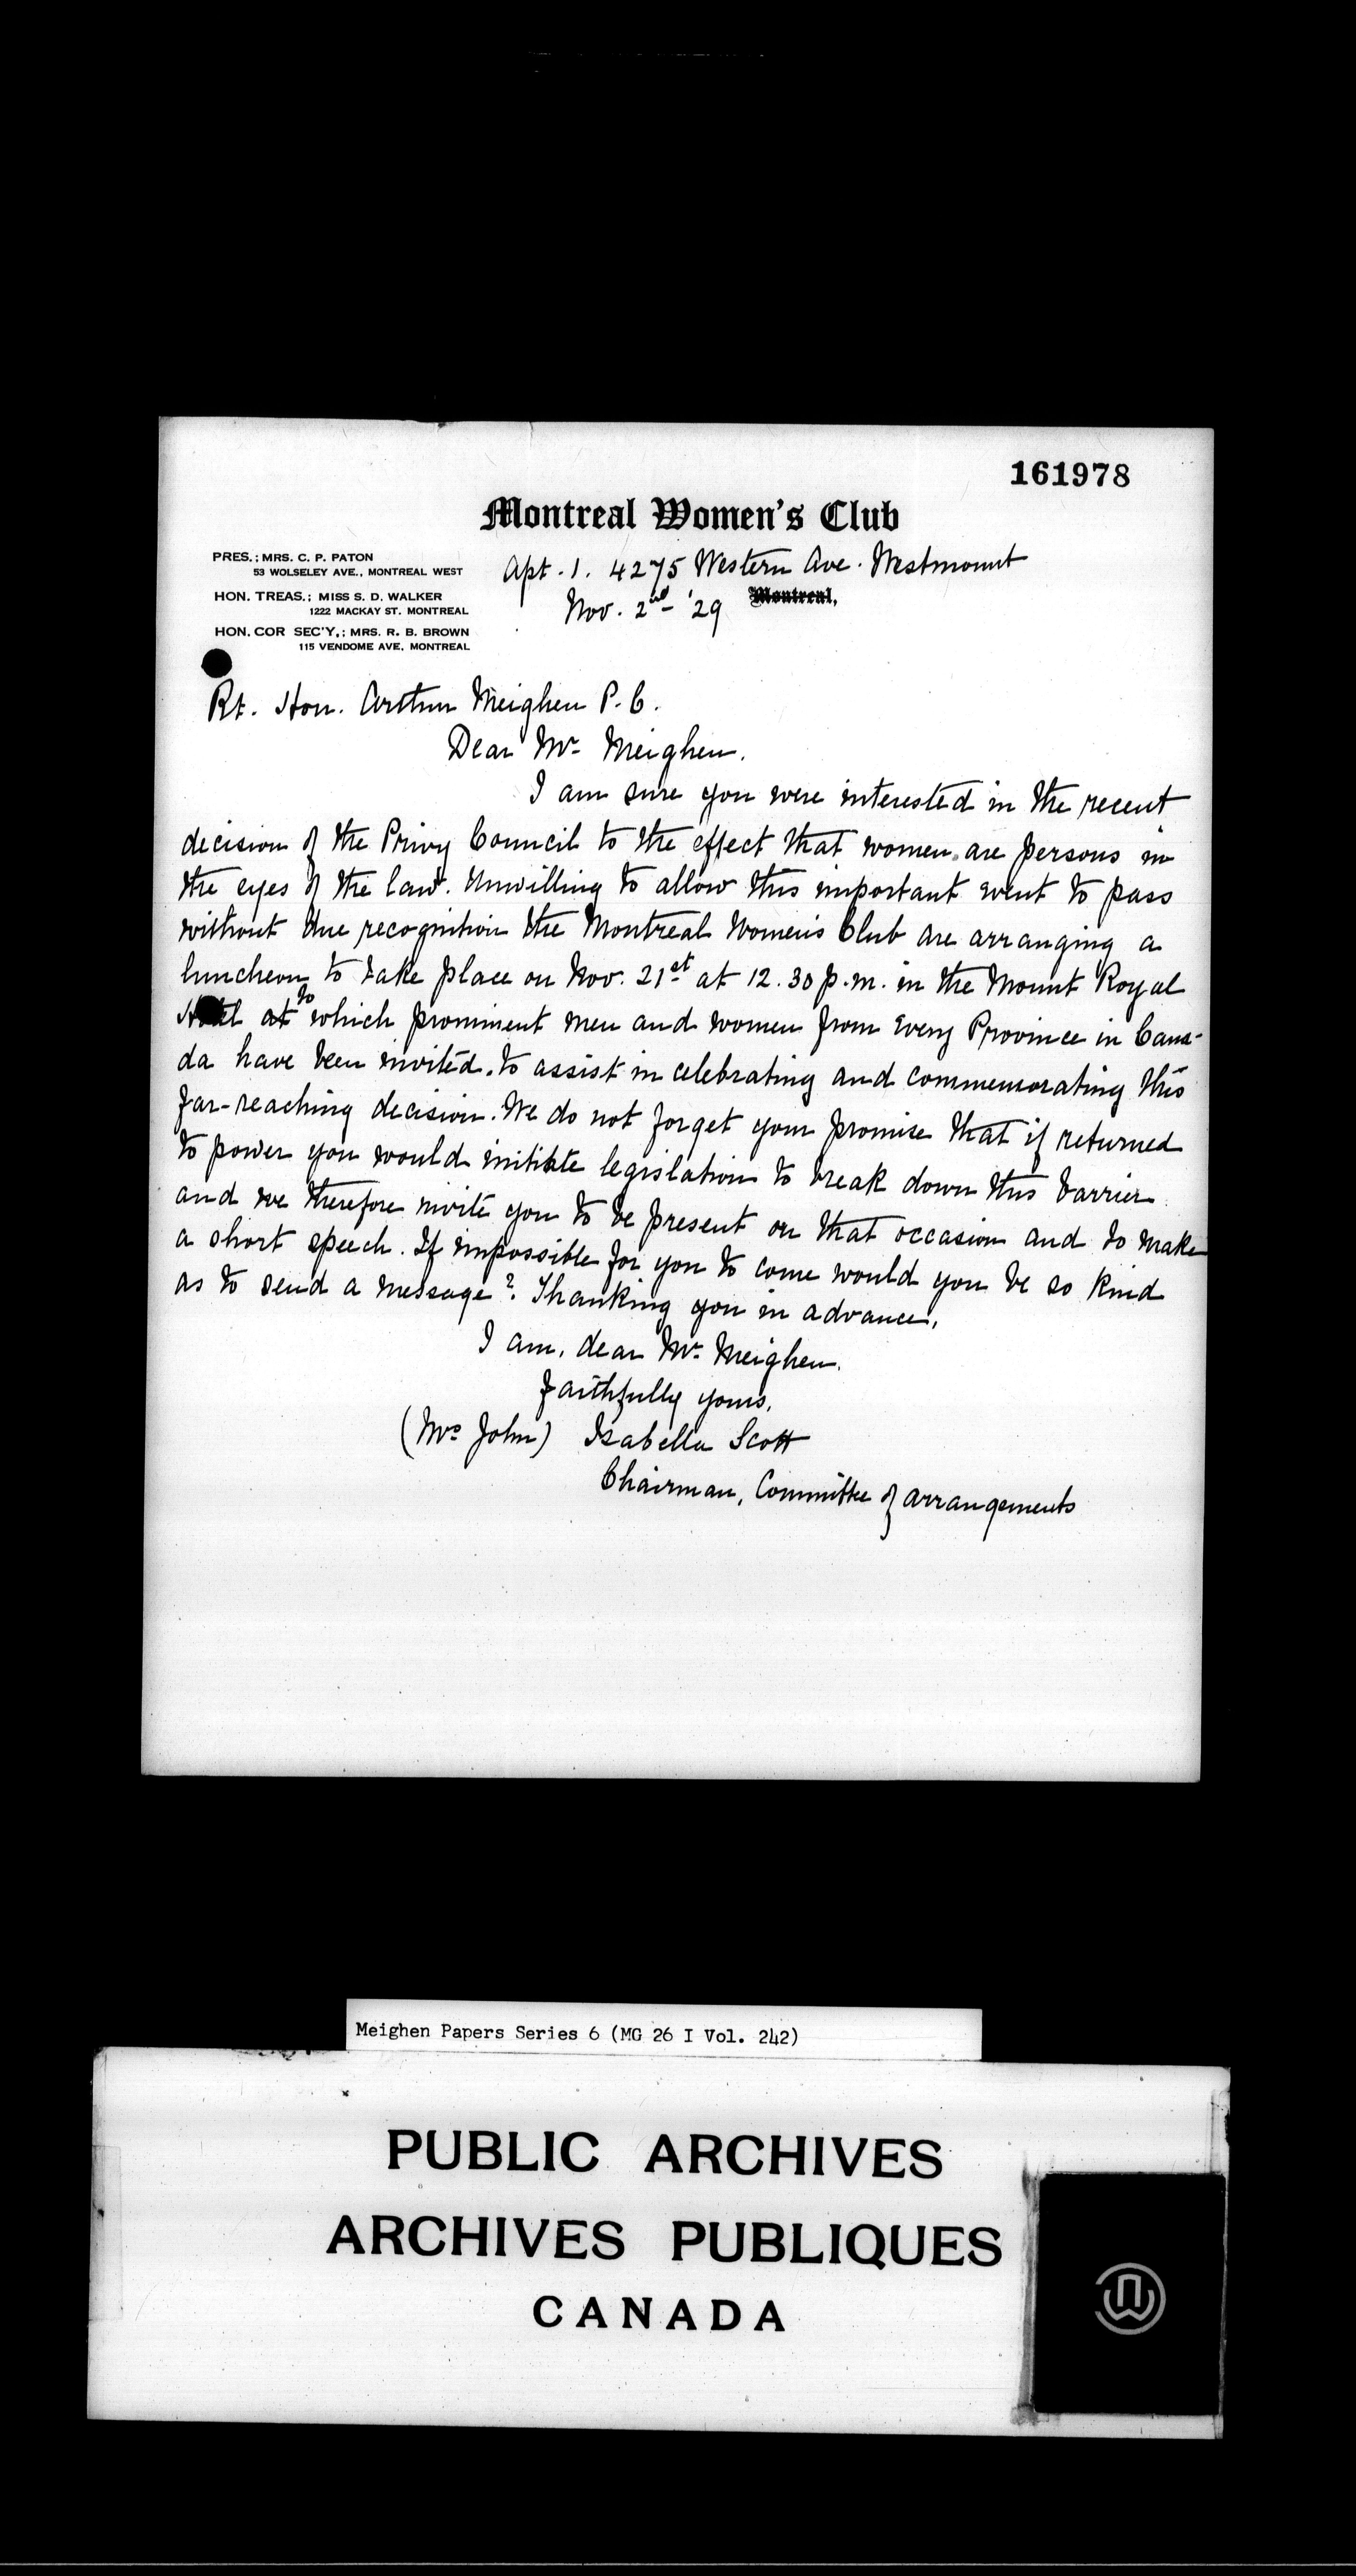 161978
Montreal Women's Club
PRES.: MRS. C. P. PATON
53 WOLSELEY AVE., MONTREAL WEST
HON. TREAS.: MISS S. D. WALKER
1222 MACKAY ST. MONTREAL
HON. COR SEC'Y.: MRS. R. B. BROWN
115 VENDOME AVE, MONTREAL
Apt. 1. 4275 Western Ave. Westmount
Montreal,
Nov. 2nd '29
Rt. Hon. Arthur Meighen P.C.
Dear Mr Meighen.
I am sure you were interested in the recent
decision of the Privy Council to the effect that women are persons in
the eyes of the law. Unwilling to allow this important event to pass
without due recognition the Montreal Women's Club are arranging a
luncheon to take place on Nov. 21st at 12.30 p.m. in the Mount Royal
Hotel at to which prominent men and women from every Province in Cana-
da have been invited, to assist in celebrating and commemorating this
far-reaching decision. We do not forget your promise that if returned
to power you would initiate legislation to break down this barrier
and we therefore invite you to be present on that occasion and to make
a short speech. If impossible for you to come would you be so kind
as to send a message? Thanking you in advance,
I am, dear Mr Meighen.
Faithfully yours,
(Mrs John) Isabella Scott
Chairman, Committee of Arrangements
Meighen Papers Series 6 (MG 26 I Vol. 242)
PUBLIC ARCHIVES
ARCHIVES PUBLIQUES
CANADA